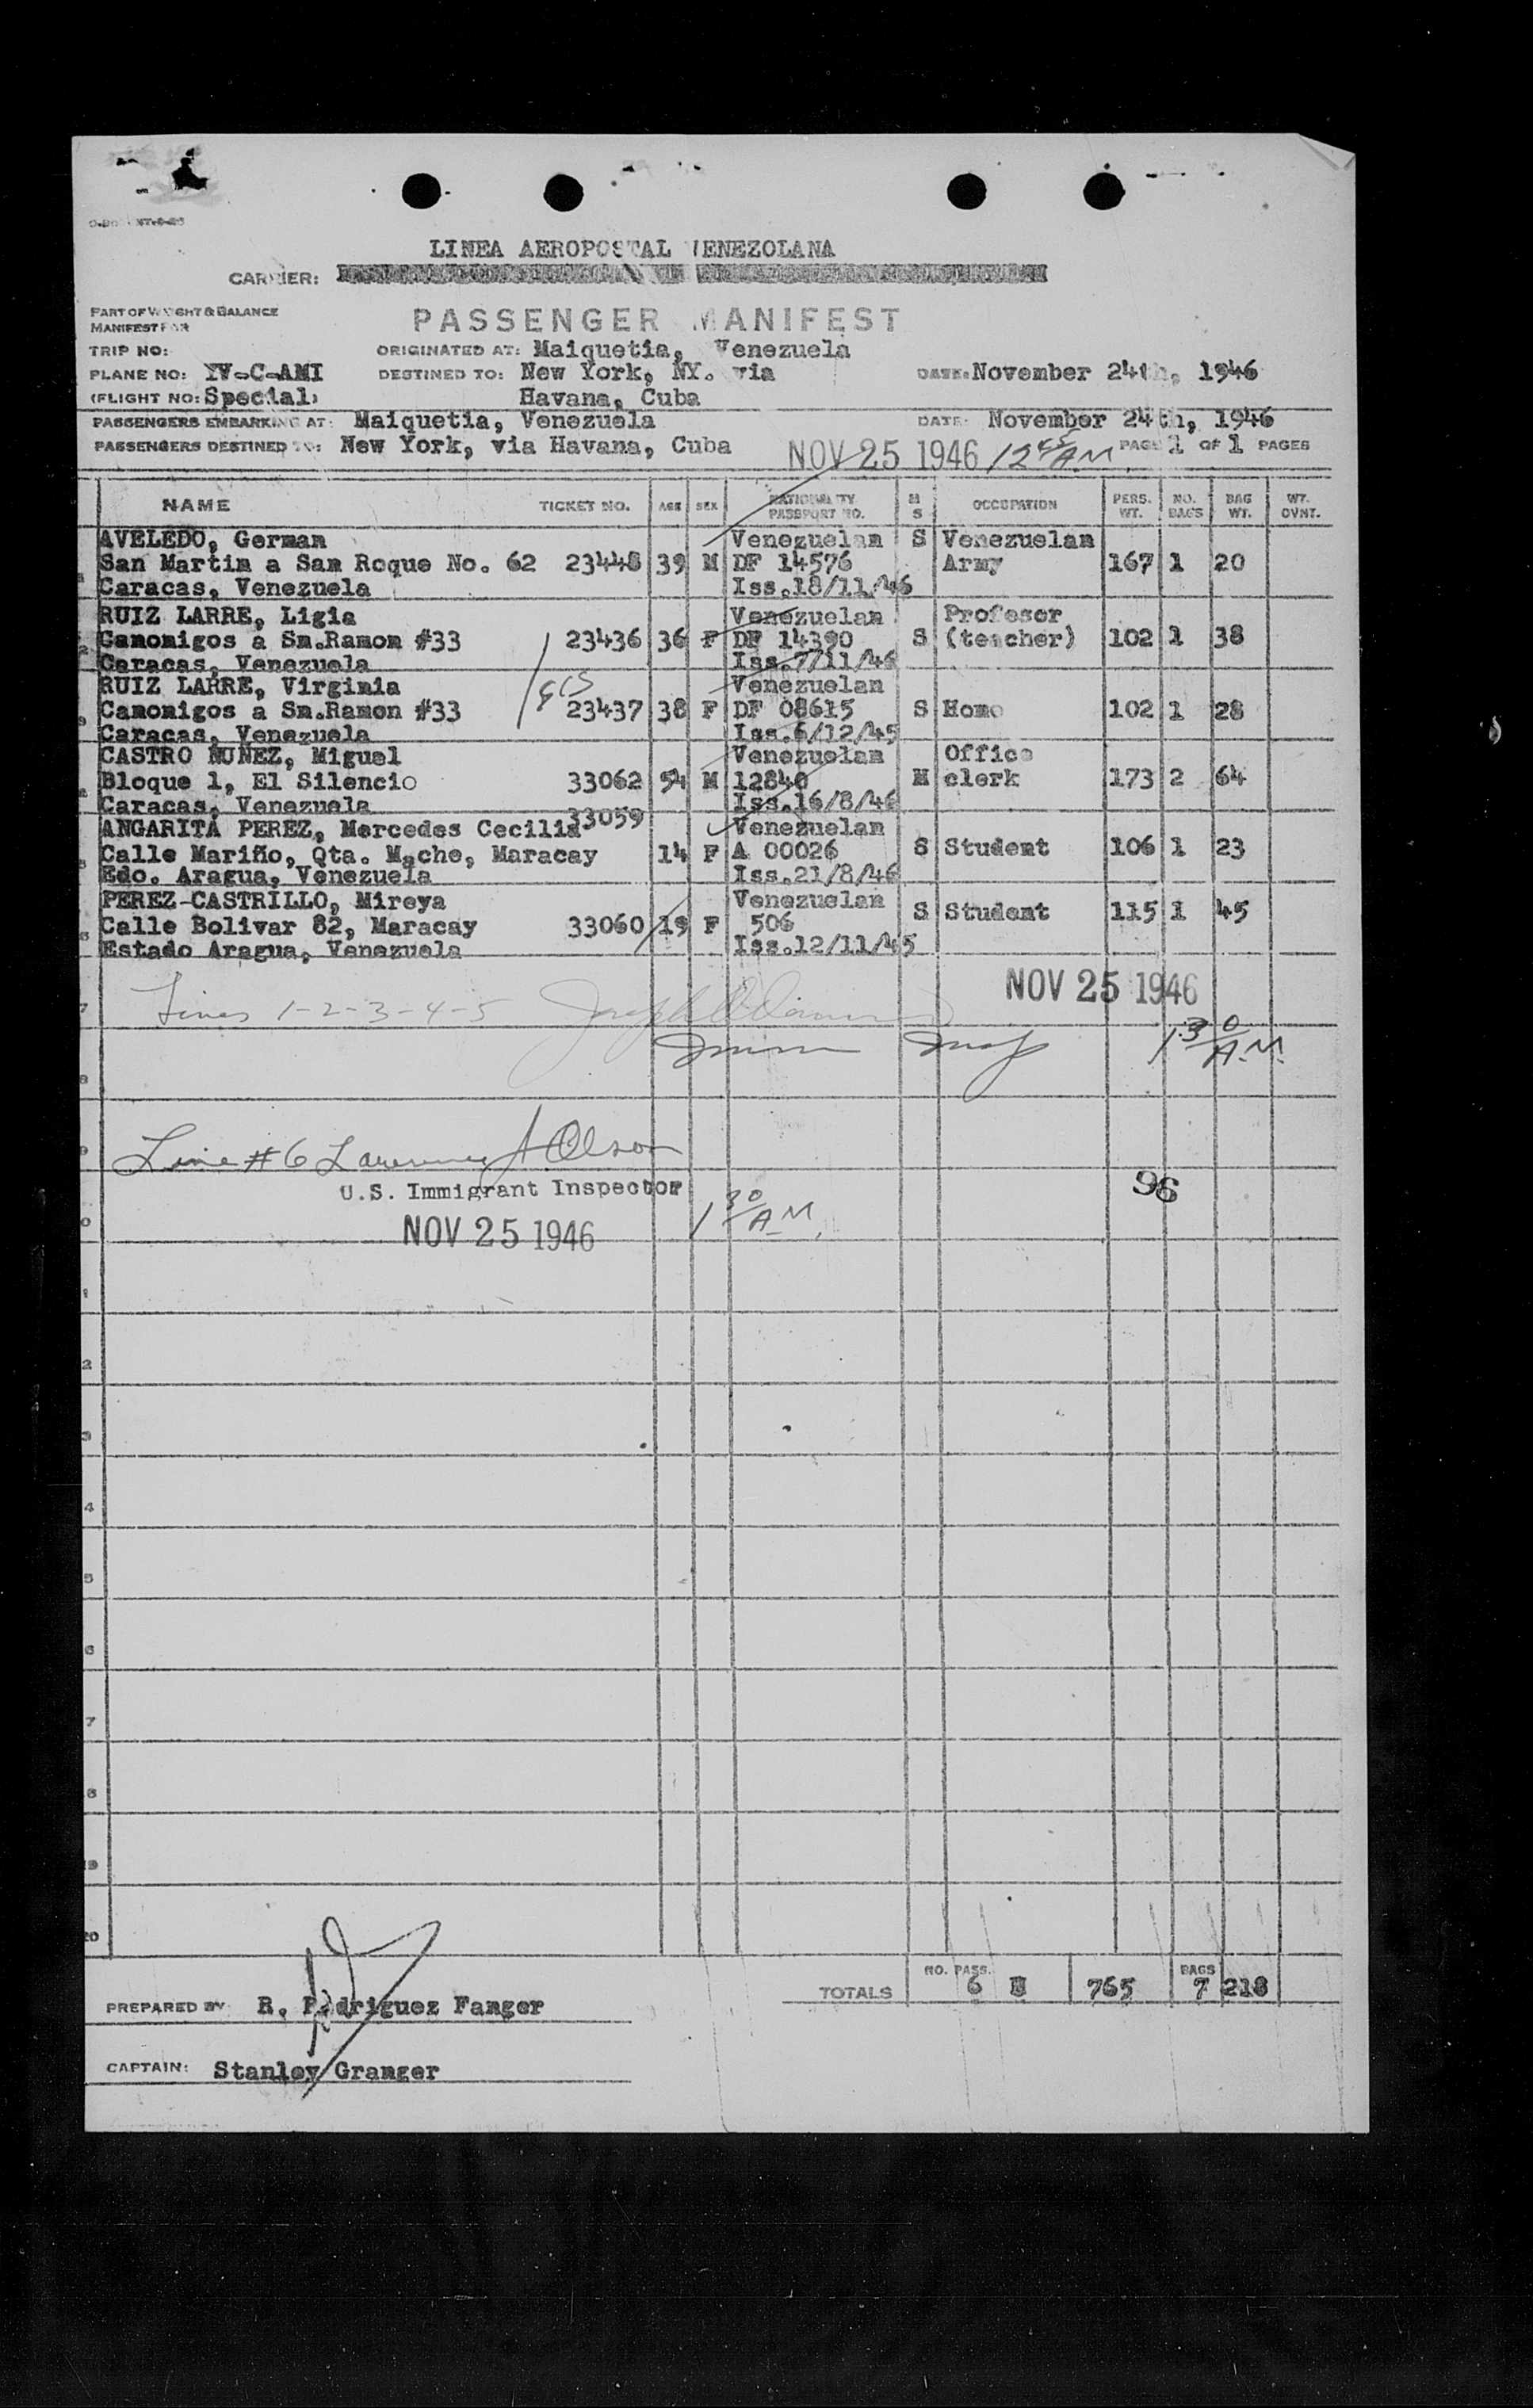 LINEA AEROPOSTAL VENEZOLANA
CARRIER:
PART OF WEIGHT & BALANCE
MANIFEST FOR
PASSENGER MANIFEST
TRIP NO: ORIGINATED AT: Maiquetia, Venezuela
PLANE NO: YV-C-AMI DESTINED TO: New York, NY. via DATE: November 24th, 1946
(FLIGHT NO: Special) Havana, Cuba
PASSENGERS EMBARKING AT: Maiquetia, Venezuela DATE: November 24th, 1946
PASSENGERS DESTINED TO: New York, via Havana, Cuba NOV 25 1946 12 45 A.M. PAGE 1 OF 1 PAGES
NAME TICKET NO. AGE SEX NATIONALITY PASSPORT NO. M S OCCUPATION PERS. WT. NO. BAGS BAG WT. WT. OVNT.
AVELEDO, German Venezuelan S Venezuelan
San Martin a San Roque No. 62 23448 39 M DF 14576 Army 167 1 20
Caracas, Venezuela Iss.18/11/46
RUIZ LARRE, Ligia Venezuelan Profesor
Canonigos a Sn.Ramon #33 23436 36 F DF 14390 S (teacher) 102 1 38
Caracas, Venezuela Iss.7/11/46
RUIZ LARRE, Virginia Venezuelan
Canonigos a Sn.Ramon #33 23437 38 F DF 08615 S Home 102 1 28
Caracas, Venezuela Iss.6/12/45
CASTRO NUÑEZ, Miguel Venezuelan Office
Bloque 1, El Silencio 33062 54 M 12840 M clerk 173 2 64
Caracas, Venezuela Iss.16/8/46
ANGARITA PEREZ, Mercedes Cecilia 33059 Venezuelan
Calle Mariño, Qta. Mache, Maracay 14 F A 00026 S Student 106 1 23
Edo. Aragua, Venezuela Iss.21/8/46
PEREZ-CASTRILLO, Mireya Venezuelan
Calle Bolivar 82, Maracay 33060 19 F 506 S Student 115 1 45
Estado Aragua, Venezuela Iss.12/11/45
NOV 25 1946
Lines 1-2-3-4-5
Imm Insp 1 30 A.M.
Line #6 Lawrence A. Olson
U.S. Immigrant Inspector 96
NOV 25 1946 1 30 A.M.
TOTALS NO. PASS. 6 765 BAGS 7 218
PREPARED BY R. Rodriguez Fanger
CAPTAIN: Stanley Granger